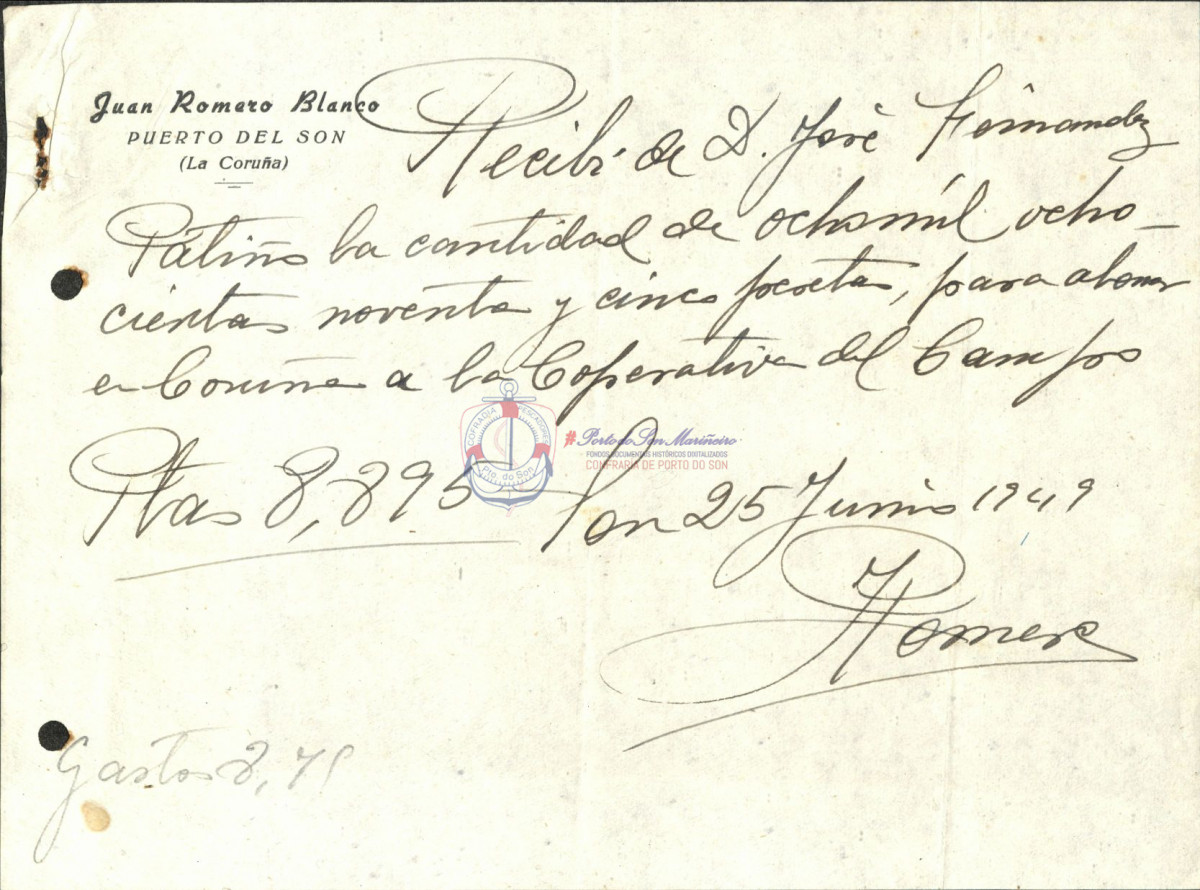 Juan Romero Blanco
PUERTO DEL SON
(La Coruña)
Recibi de D. José Fernandez
Patiño la cantidad de ochomil ocho-
cientas noventa y cinco pesetas, para abonar
en Coruña a la Cooperativa del Campo
Ptas 8,895 Son 25 Junio 1949
COFRADIA PESCADORES
Pto. do Son
#PortodoSonMariñeiro
FONDOS DOCUMENTOS HISTÓRICOS DIGITALIZADOS
CONFRARÍA DE PORTO DO SON
Romero
Gastos 8,75